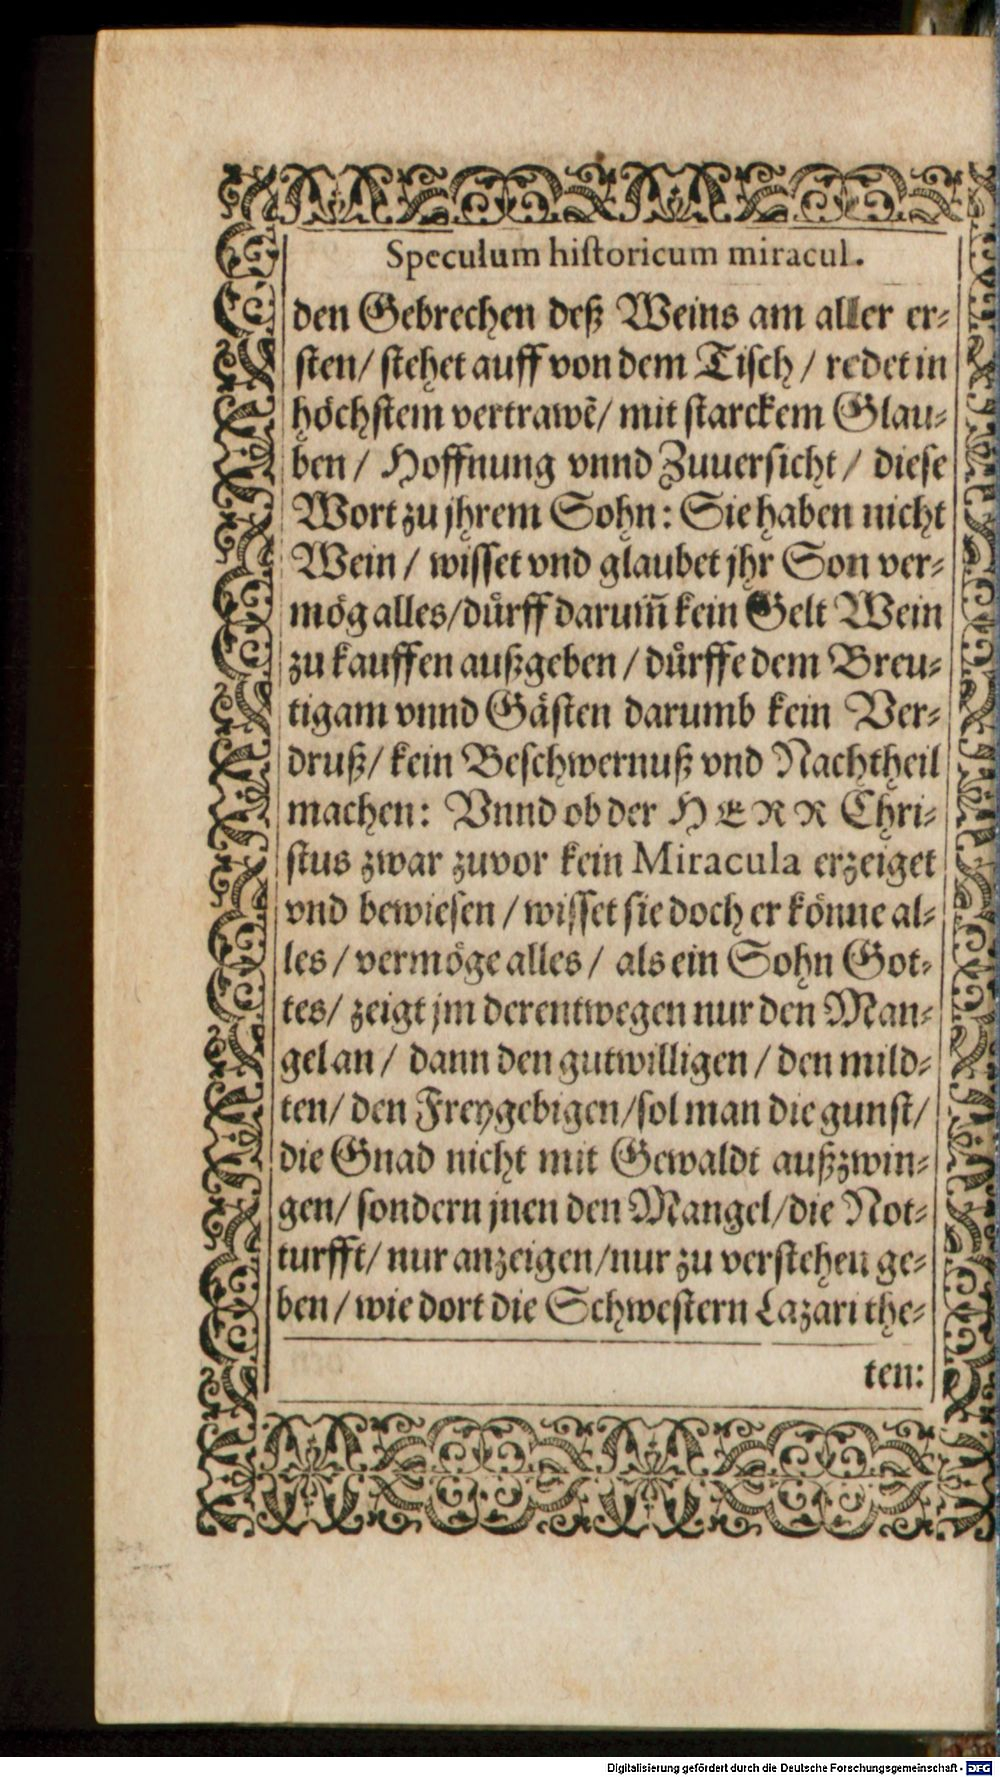 Speculum hiſtoricum miracul.
den Gebrechen deß Weins am aller er⸗
ſten/ ſtehet auff von dem Tiſch / redet in
hoͤchſtem vertrawẽ/ mit ſtarckem Glau⸗
ben / Hoffnung vnnd Zuuerſicht / dieſe
Wort zu jhrem Sohn: Sie haben nicht
Wein / wiſſet vnd glaubet jhr Son ver⸗
moͤg alles/duͤrff darum̃ kein Gelt Wein
zu kauffen außgeben / duͤrffe dem Breu⸗
tigam vnnd Gaͤſten darumb kein Ver⸗
druß/ kein Beſchwernuß vnd Nachtheil
machen: Vnnd ob der HERR Chri⸗
ſtus zwar zuvor kein Miracula erzeiget
vnd bewieſen / wiſſet ſie doch er koͤnne al⸗
les / vermoͤge alles / als ein Sohn Got⸗
tes/ zeigt jm derentwegen nur den Man⸗
gel an / dann den gutwilligen / den mild⸗
ten/ den Freygebigen/ſol man die gunſt/
die Gnad nicht mit Gewaldt außzwin⸗
gen/ ſondern jnen den Mangel/die Not⸗
turfft/ nur anzeigen/nur zu verſtehen ge⸗
ben / wie dort die Schweſtern Lazari the⸗
ten:
Digitalisierung gefördert durch die Deutsche Forschungsgemeinschaft - DFG